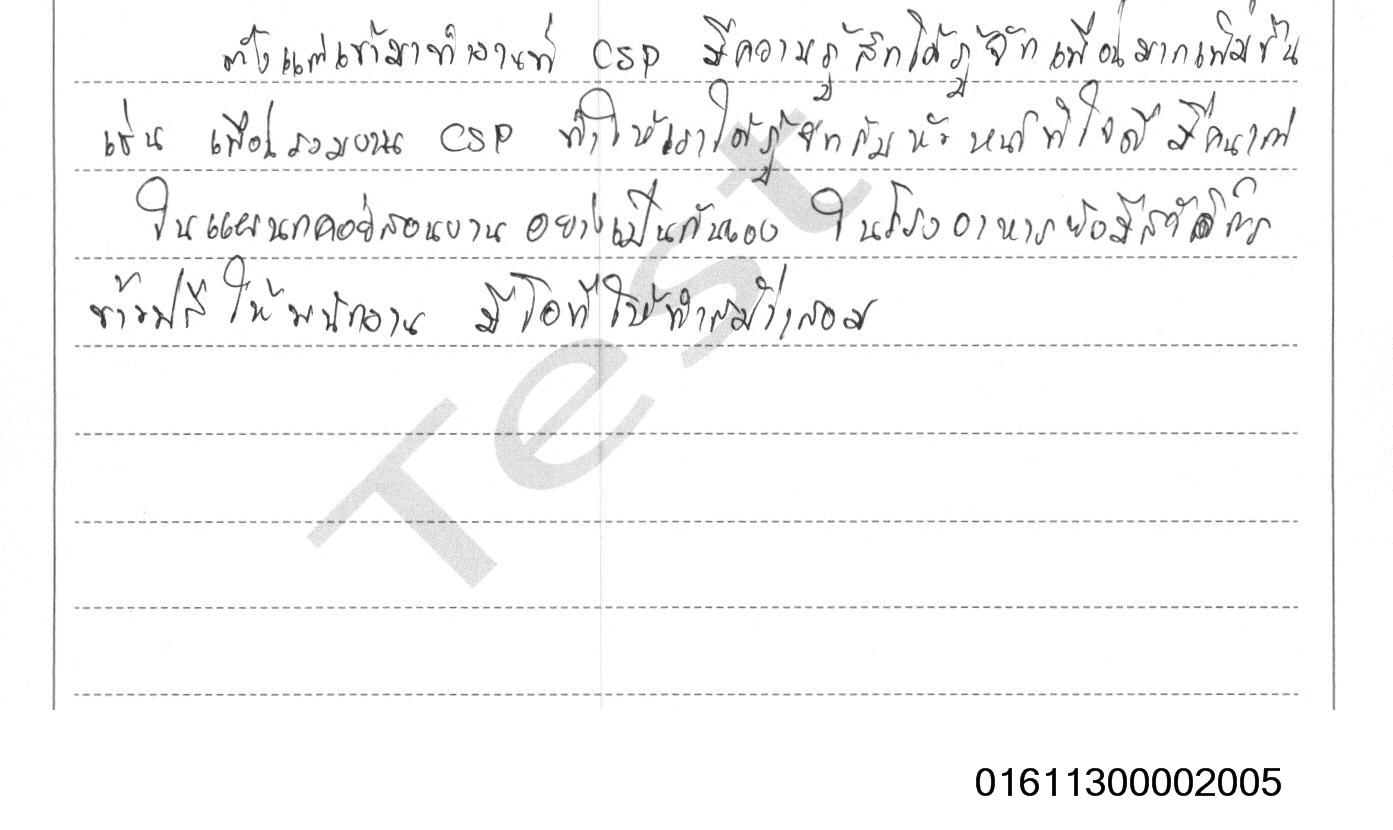 ตั้งแต่เข้ามาทำงานที่ CSP มีความรู้สึกได้รู้จักเพื่อนมากเพิ่มขึ้น
เช่น เพื่อนร่วมงาน CSP ทำให้เราได้รู้จักกับหัวหน้าที่ใจดี มี
ในแผนกคอยสอนงาน อย่างเป็นกันเอง ในโรงอาหารยังมีสวัสดิการ
ข้าวฟรี ให้พนักงาน มีโอทีให้ทำสม่ำเสมอ
Test
01611300002005